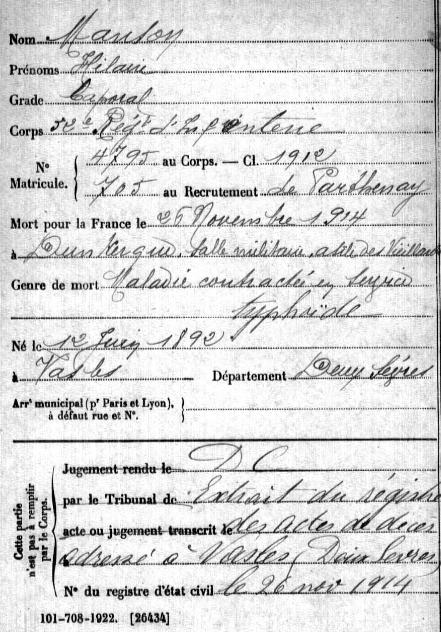 Nom Manson
Prénoms Hilaire
Grade Caporal
Corps 32e Régt d'Infanterie
N° Matricule. 4795 au Corps. — Cl. 1912
705 au Recrutement de Parthenay
Mort pour la France le 26 Novembre 1914
à Dunkerque, salle militaire, asile des Vieillards
Genre de mort Maladie contractée en service
typhoïde
Né le 12 1892
à Vasles Département Deux Sèvres
Arrt municipal (pr Paris et Lyon), à défaut rue et N°.
Cette partie n'est pas à remplir par le Corps.
Jugement rendu le D C
par le Tribunal de Extrait du régistre
acte ou jugement transcrit le des actes de décès
adressé à Vasles (Deux Sèvres)
N° du registre d'état civil le 26 nov 1914
101-708-1922. [26434]